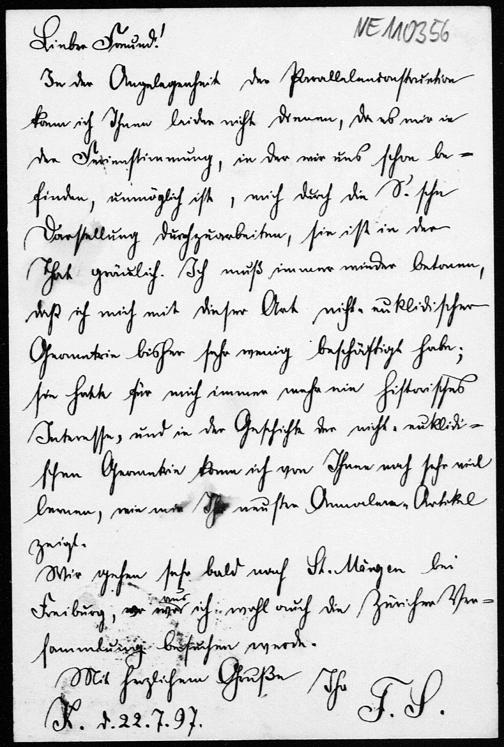 NE 110356
Lieber Freund!
In der Angelegenheit der Parallelenconstruction
kann ich Ihnen leider nicht dienen, da es mir in
der Ferienstimmung, in der wir uns schon be-
finden, unmöglich ist, mich durch die S.'sche
Darstellung durchzuarbeiten, sie ist in der
That gräulich. Ich muß immer wieder betonen,
daß ich mich mit dieser Art nicht-euklidischer
Geometrie bisher sehr wenig beschäftigt habe;
sie hatte für mich immer mehr ein historisches
Interesse, und in der Geschichte der nicht-euklidi-
schen Geometrie kann ich von Ihnen noch sehr viel
lernen, wie mir Ihr neuster Annalen-Artikel
zeigt.
Wir gehen sehr bald nach St. Märgen bei
Freiburg, von wo aus ich wohl auch die Züricher Ver-
sammlung besuchen werde.
Mit herzlichem Gruße Ihr
K. d. 22.7.97. F. S.